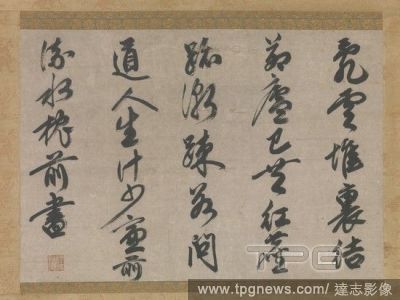 乱雲堆裏結
茅廬已共紅塵
跡漸疎問
道人生計窓前
流水枕前書
TPG
www.tpgnews.com / 達志影像